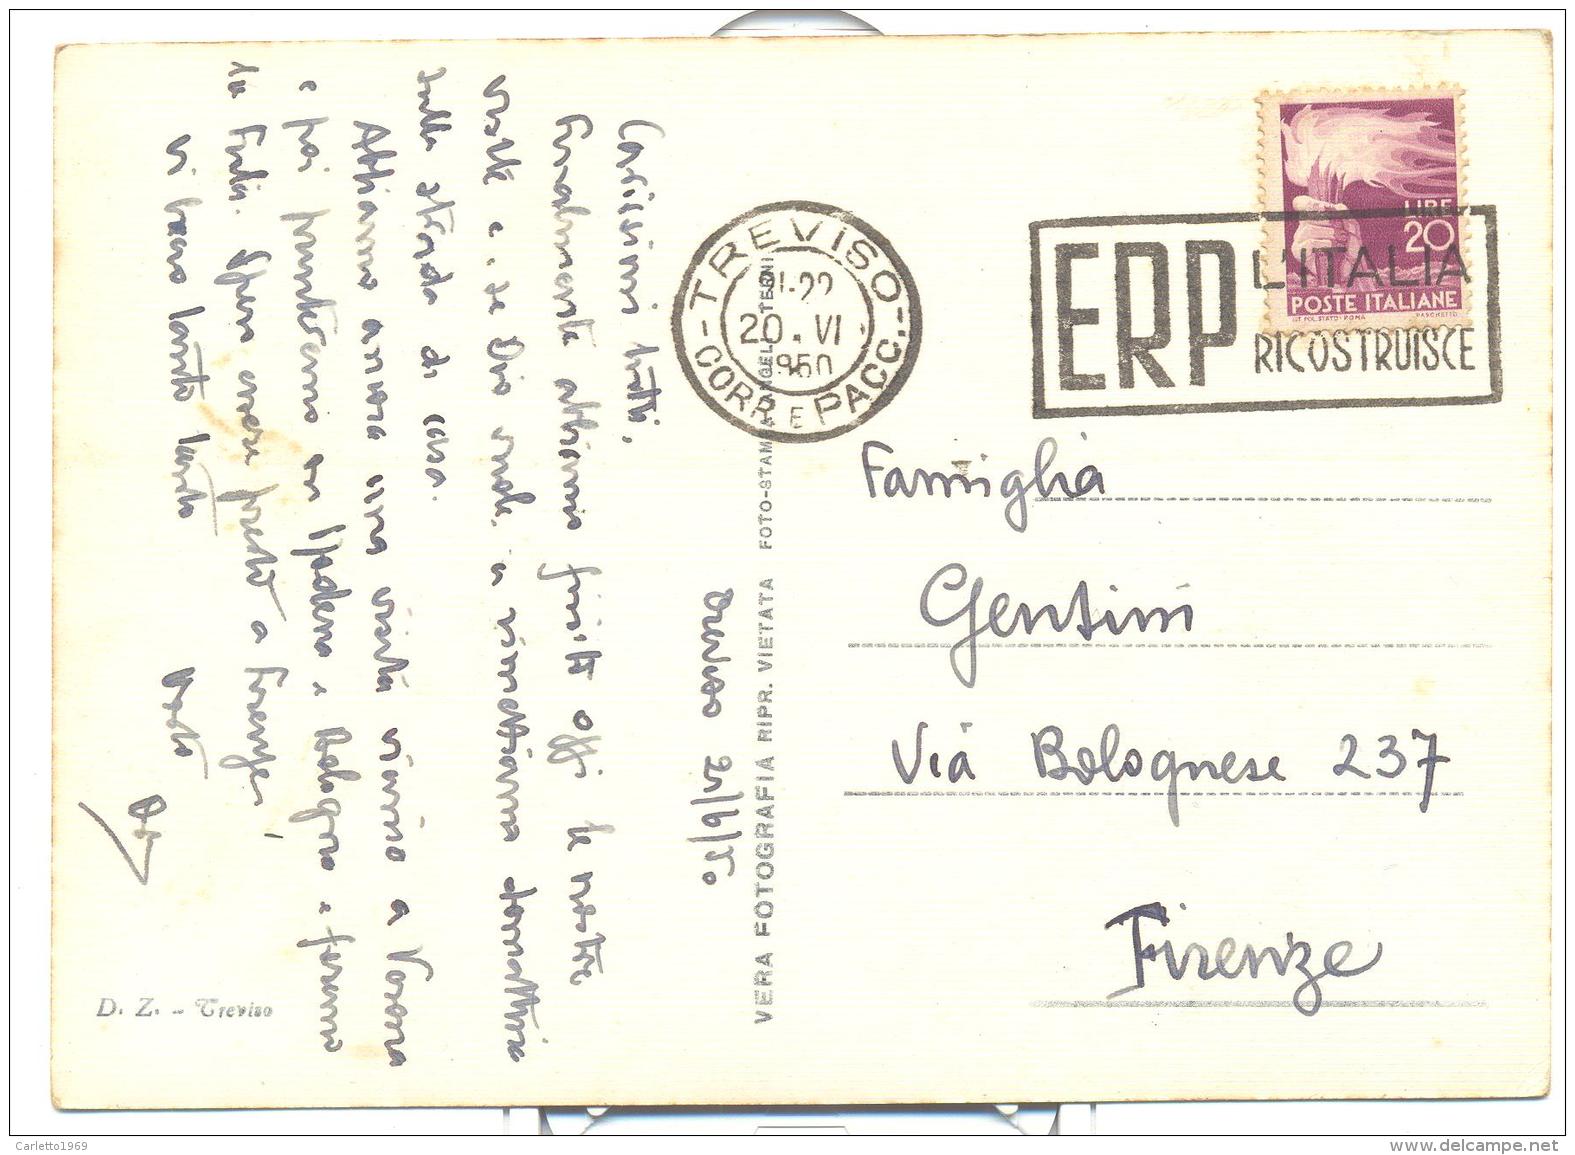 Treviso 20/6/50
Carissimi tutti,
Finalmente abbiamo finito oggi le nostre
visite e, se Dio vuole, ci rimettiamo domattina
sulla strada di casa.
Abbiamo ancora una visita vicino a Verona
e poi punteremo su Modena e Bologna e
Spero essere presto a Firenze,
vi bacio tanto tanto
vostro
D. Z. - Treviso
VERA FOTOGRAFIA RIPR. VIETATA FOTO-STAMPA ANGELI, TERNI
TREVISO
21-22
20 . VI
1950
CORR. E PACC.
LIRE
20
POSTE ITALIANE
IST. POL. STATO - ROMA PASCHETTO
ERP L'ITALIA
RICOSTRUISCE
Famiglia
Gentini
Via Bolognese 237
Firenze
Carletto1969
www.delcampe.net